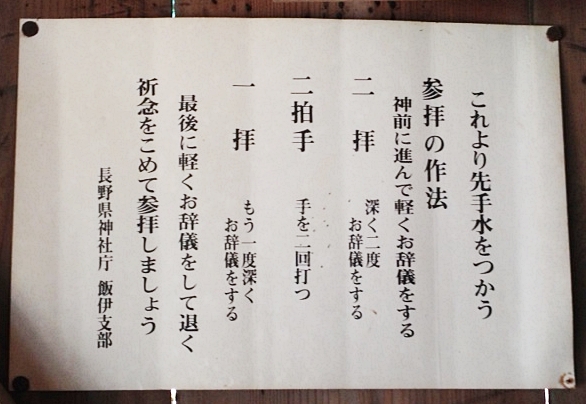 これより先手水をつかう
参拝の作法
神前に進んで軽くお辞儀をする
二拝
深く二度
お辞儀をする
二拍手
手を二回打つ
一拝
もう一度深く
お辞儀をする
最後に軽くお辞儀をして退く
祈念をこめて参拝しましょう
長野県神社庁 飯伊支部